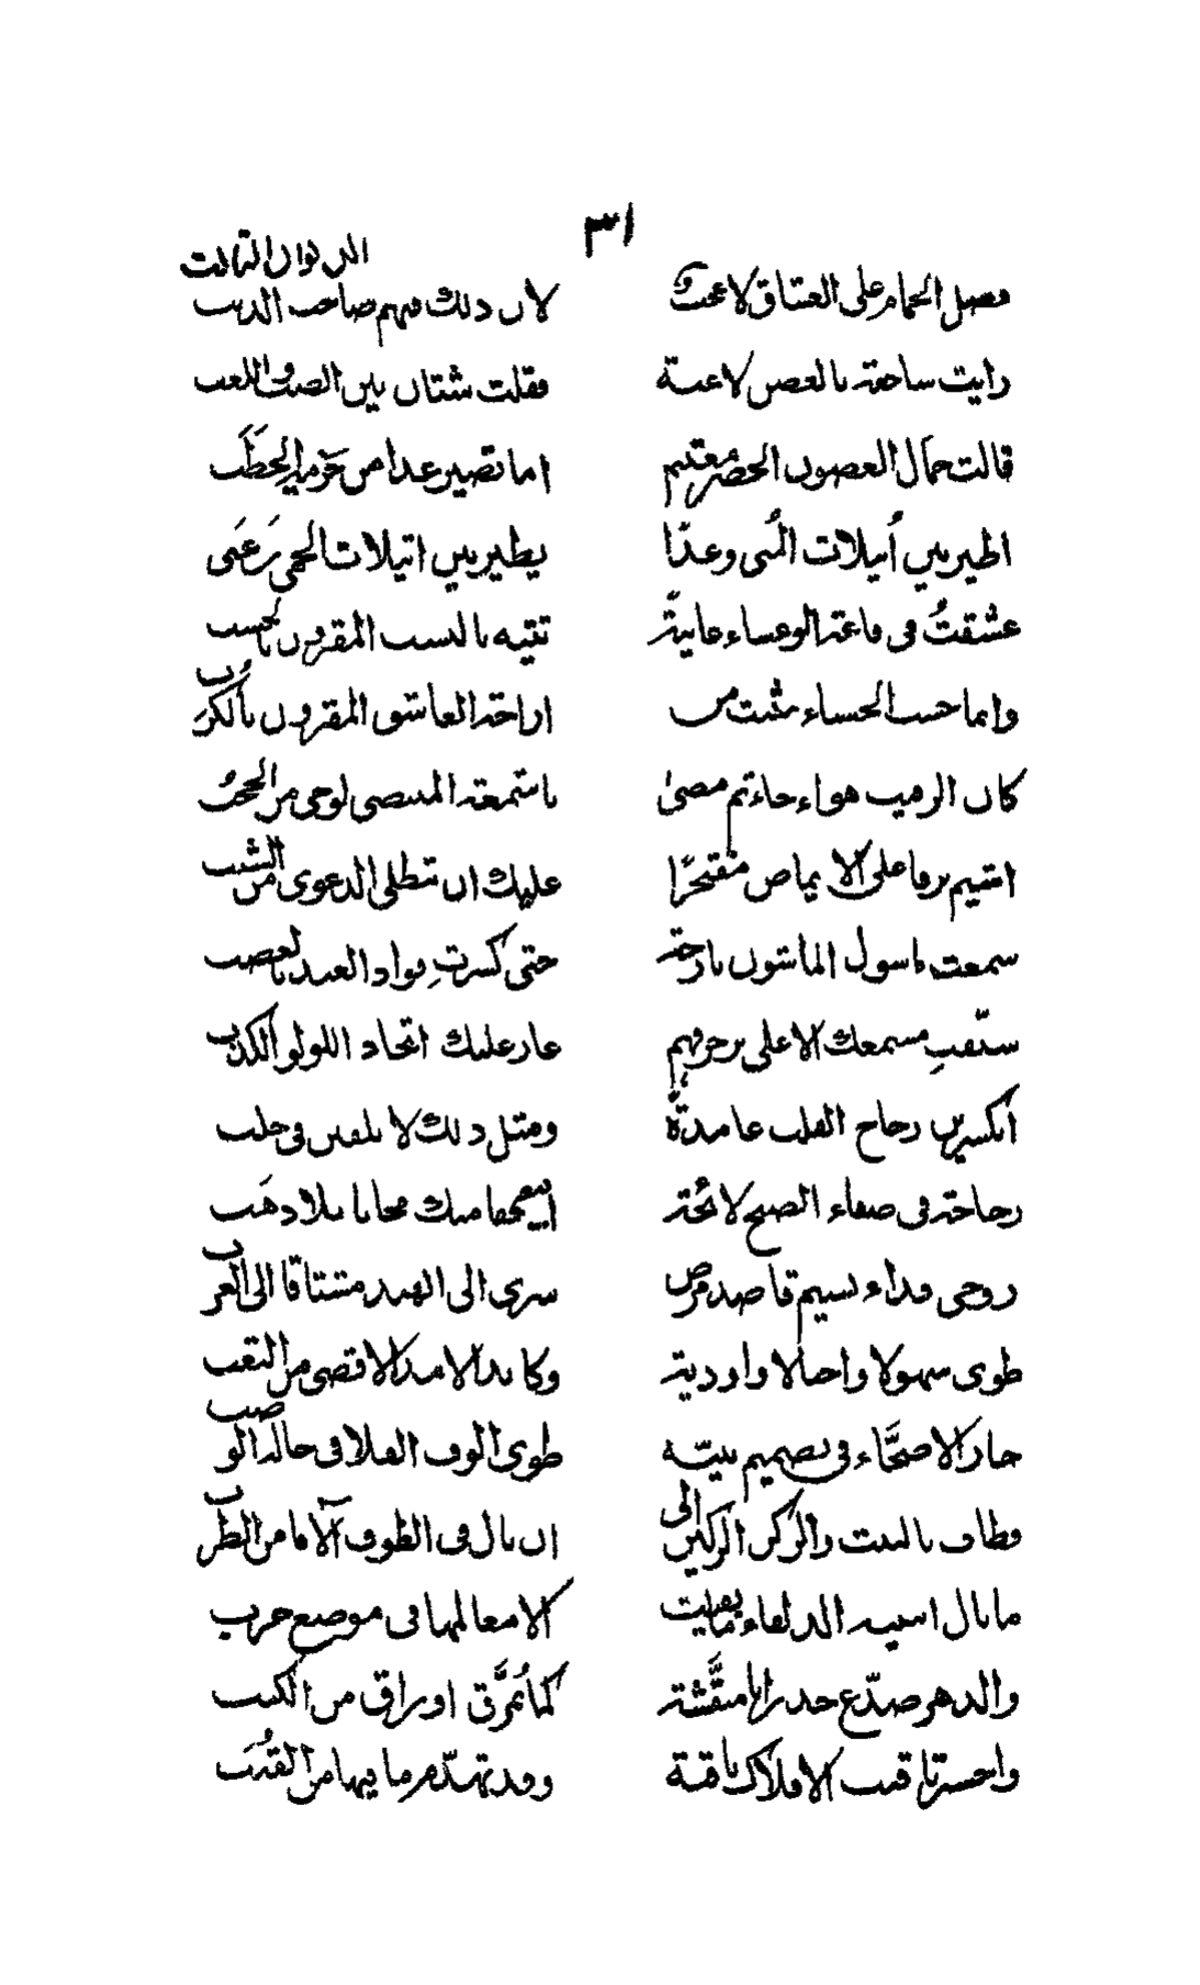 ٣١
الديوان الثالث
فضل الحمام على العشاق لا عجب لان ذلك منهم صاحب الدب
رايت ساجعة بالغصن لاعبة فقلت شتان بين الصب واللعب
قالت جمال الغصون الخضر مغتنم اما تصير غدا من حزمة الحطب
اطير بين أثيلات المنى وغدًا يطير بين اثيلات الحمى زغبى
عشقتُ فى قاعة الوعساء غانيةً تتيه بالنسب المقرون بالحسب
وانما حسب الحسناء مثبت من اراحة العاشق المقرون بالكرب
كان الرقيب هواء جاء ثم مضىٰ يا شمعة المنتضى لوحى من الحجب
اشيم برقا على الايماض مفتخرًا عليك ان تطلبى الدعوى من الشنب
سمعت ما سول الماشون بارحة حتى كسرتِ فواد العبد بالغضب
ستقبِ مسمعك الاعلى بزخرفهم عار عليك اتخاذ اللولو الكذب
اتكسرين زجاج القلب عامدةً ومثل ذلك لا تلقين فى حلب
زجاجة فى صفاء الصبح لائحة ابيعها منك مجانا بلا ذهب
روحى فداء نسيم قاصد مرض سرى الى الهند مشتاقا الى العرب
طوى سهولا واجبالا واودية وكابد الامد الاقصى من التعب
حار الاصحّاء فى تصميم نيته طوى الوف الفلا فى حالة الوصب
فطاف بالبيت والركن الركين الى ان نال فى الطوف آلاما من الطرب
ما نال اسيه الدلفاء ما بقيت الا معالمها فى موضع خرب
والدهر صدّع جدرانا منقّشة كما تُمزَّق اوراق من الكتب
واحسرتا قبب الافلاك باقية وقد تهدّم ما فيها من القبب